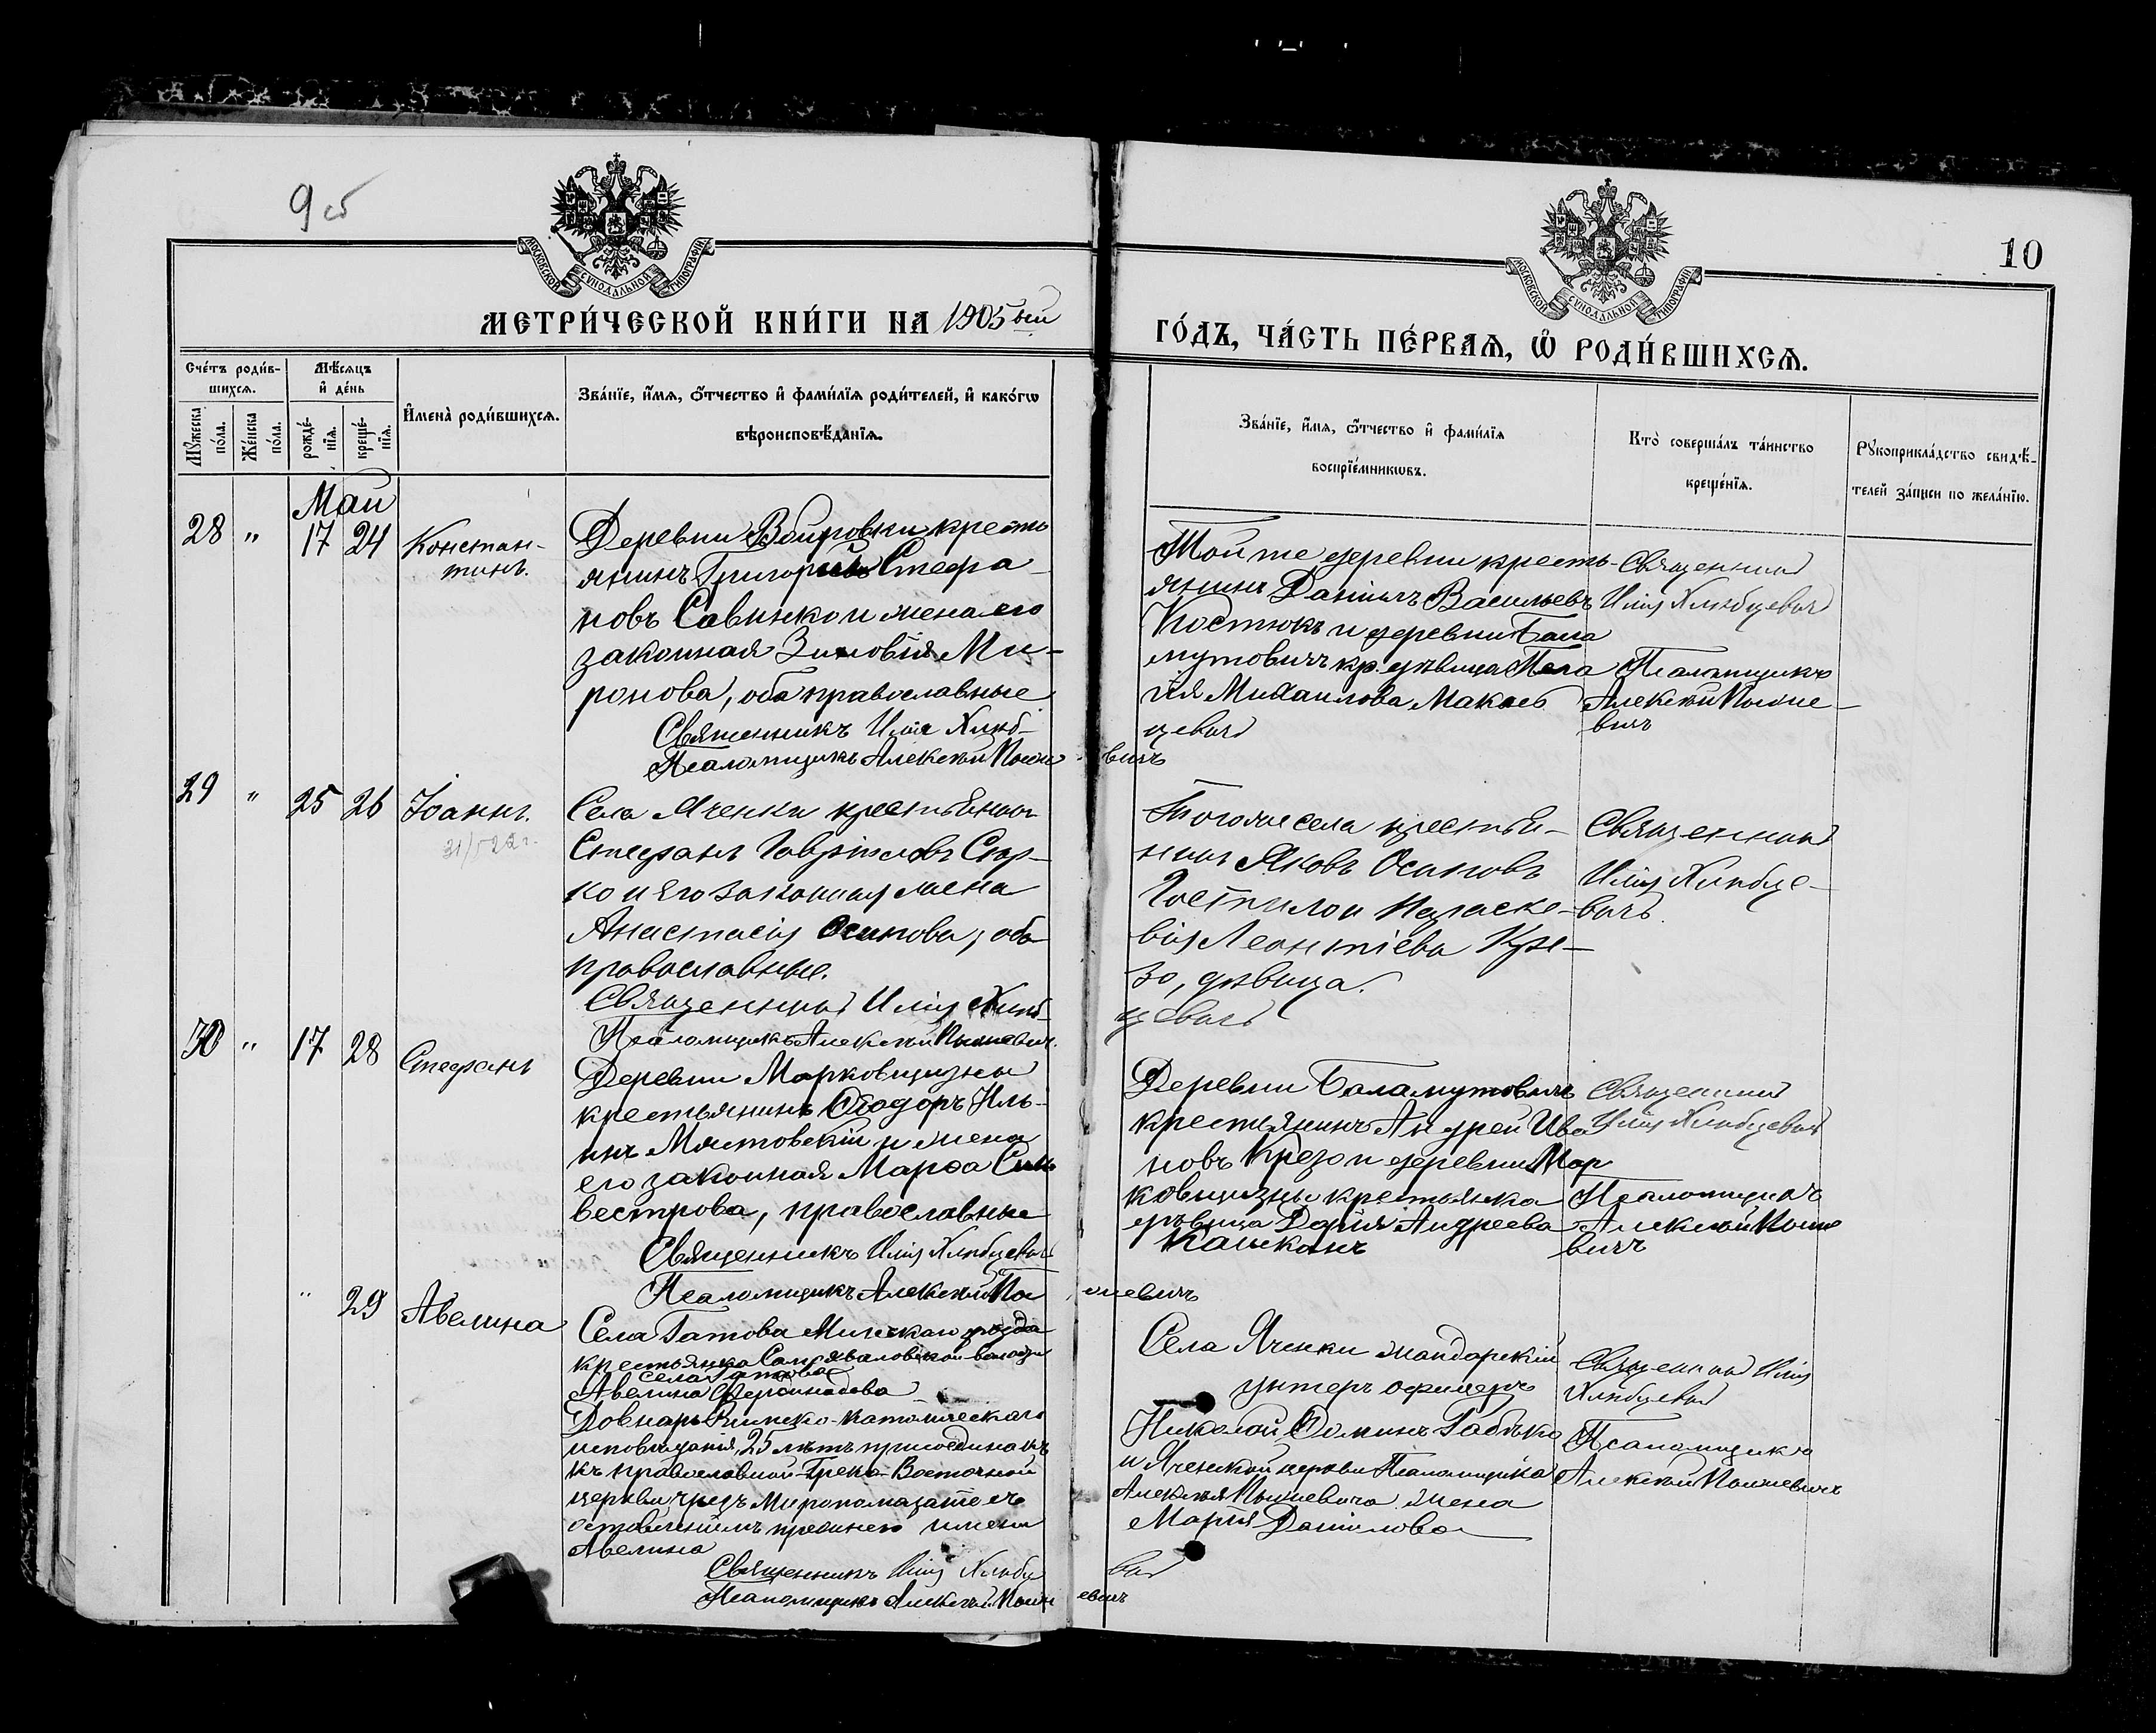 9 об
10
МОСКОВСКОЙ СУНОДАЛЬНОЙ ТИПОГРАФІИ
МОСКОВСКОЙ СУНОДАЛЬНОЙ ТИПОГРАФІИ
МЕТРИ́ЧЕСКОЙ КНИ́ГИ НА 1905 ый
ГО́ДЪ, ЧА́СТЬ ПЕ́РВАѦ, Ѡ҆ РОДИ́ВШИХСѦ.
Сче́тъ роди́в-
шихсѧ.
Мѣ́сѧцъ
и҆ де́нь
Мꙋ́жеска по́ла.
Же́нска по́ла.
рожде́-
нїѧ.
креще́-
нїѧ.
И҆мена̀ роди́вшихсѧ.
Зва́нїе, и҆́мѧ, ѻ҆́тчество и҆ фами́лїѧ роди́телей, и҆ како́гѡ
вѣроисповѣ́данїѧ.
Зва́нїе, и҆́мѧ, ѻ҆́тчество и҆ фами́лїѧ
воспрїе́мникѡвъ.
Кто̀ соверша́лъ та́инство
креще́нїѧ.
Рꙋкоприкла́дство свидѣ́-
телей за́писи по жела́нїю.
Май
28 " 17 24 Констан-
тинъ.
Деревни кресть
янинъ Григорій Стефа-
новъ Савинко и жена его
законная Зиновія Ми-
ронова, оба православные
Священникъ Илія Хлѣб-
цевичъ
Псаломщикъ Алексѣй
вичъ
Той же деревни кресть-
янинъ Даніилъ Васильевъ
Костюкъ и деревни Бала
мутовичъ кр. дѣвица Пела
гія Михаилова Макаев
Священникъ
Илія Хлѣбцевичъ
Псаломщикъ
Алексѣй
вичъ
29 " 25 26 Іоаннъ.
Села Яченки крестьянинъ
Стефанъ Гавріиловъ Сюр-
ко и его законная жена
Анастасія Осипова, оба
православные.
Священникъ Илія Хлѣб-
цевичъ
Псаломщикъ Алексѣй
Тогоже села крестья-
нинъ Яковъ Осиповъ
Гостило и Параске-
вія Леонтіева Кре-
зо, дѣвица.
Священникъ
Илія Хлѣбце-
вичъ.
30 " 17 28 Стефанъ
Деревни Марковщизны
крестьянинъ Ѳеодоръ Иль-
инъ Мястовскій и жена
его законная Марѳа Силь
вестрова, православные
Священникъ Илія Хлѣбцевичъ
Псаломщикъ Алексѣй
Деревни Баламутовичъ
крестьянинъ Андрей Ива
новъ Крезо и деревни Мар
ковщизны крестьянка
дѣвица Дарія Андреева
Кашканъ
Священникъ
Илія Хлѣбцевичъ
Псаломщикъ
Алексѣй
вичъ
" 29 Авелина
Села Гатова Минскаго уѣзда
крестьянка волости
села Гатова
Авелина
Довнаръ Римско-католическаго
исповѣданія, 25 лѣтъ присоединена
къ православной-Греко-Восточной
церкви, чрезъ Миропомазаніе съ
оставленіемъ прежнего имени
Авелина
Священникъ Илія Хлѣбце
вичъ
Псаломщикъ Алексѣй
евичъ
Села Яченки жандарскій
унтеръ офицеръ
Николай Ѳоминъ
и Яченской церкви Псаломщика
Алексѣя жена
Марія Даніилова
Священникъ Илія
Хлѣбцевичъ
Псаломщикъ
Алексѣй